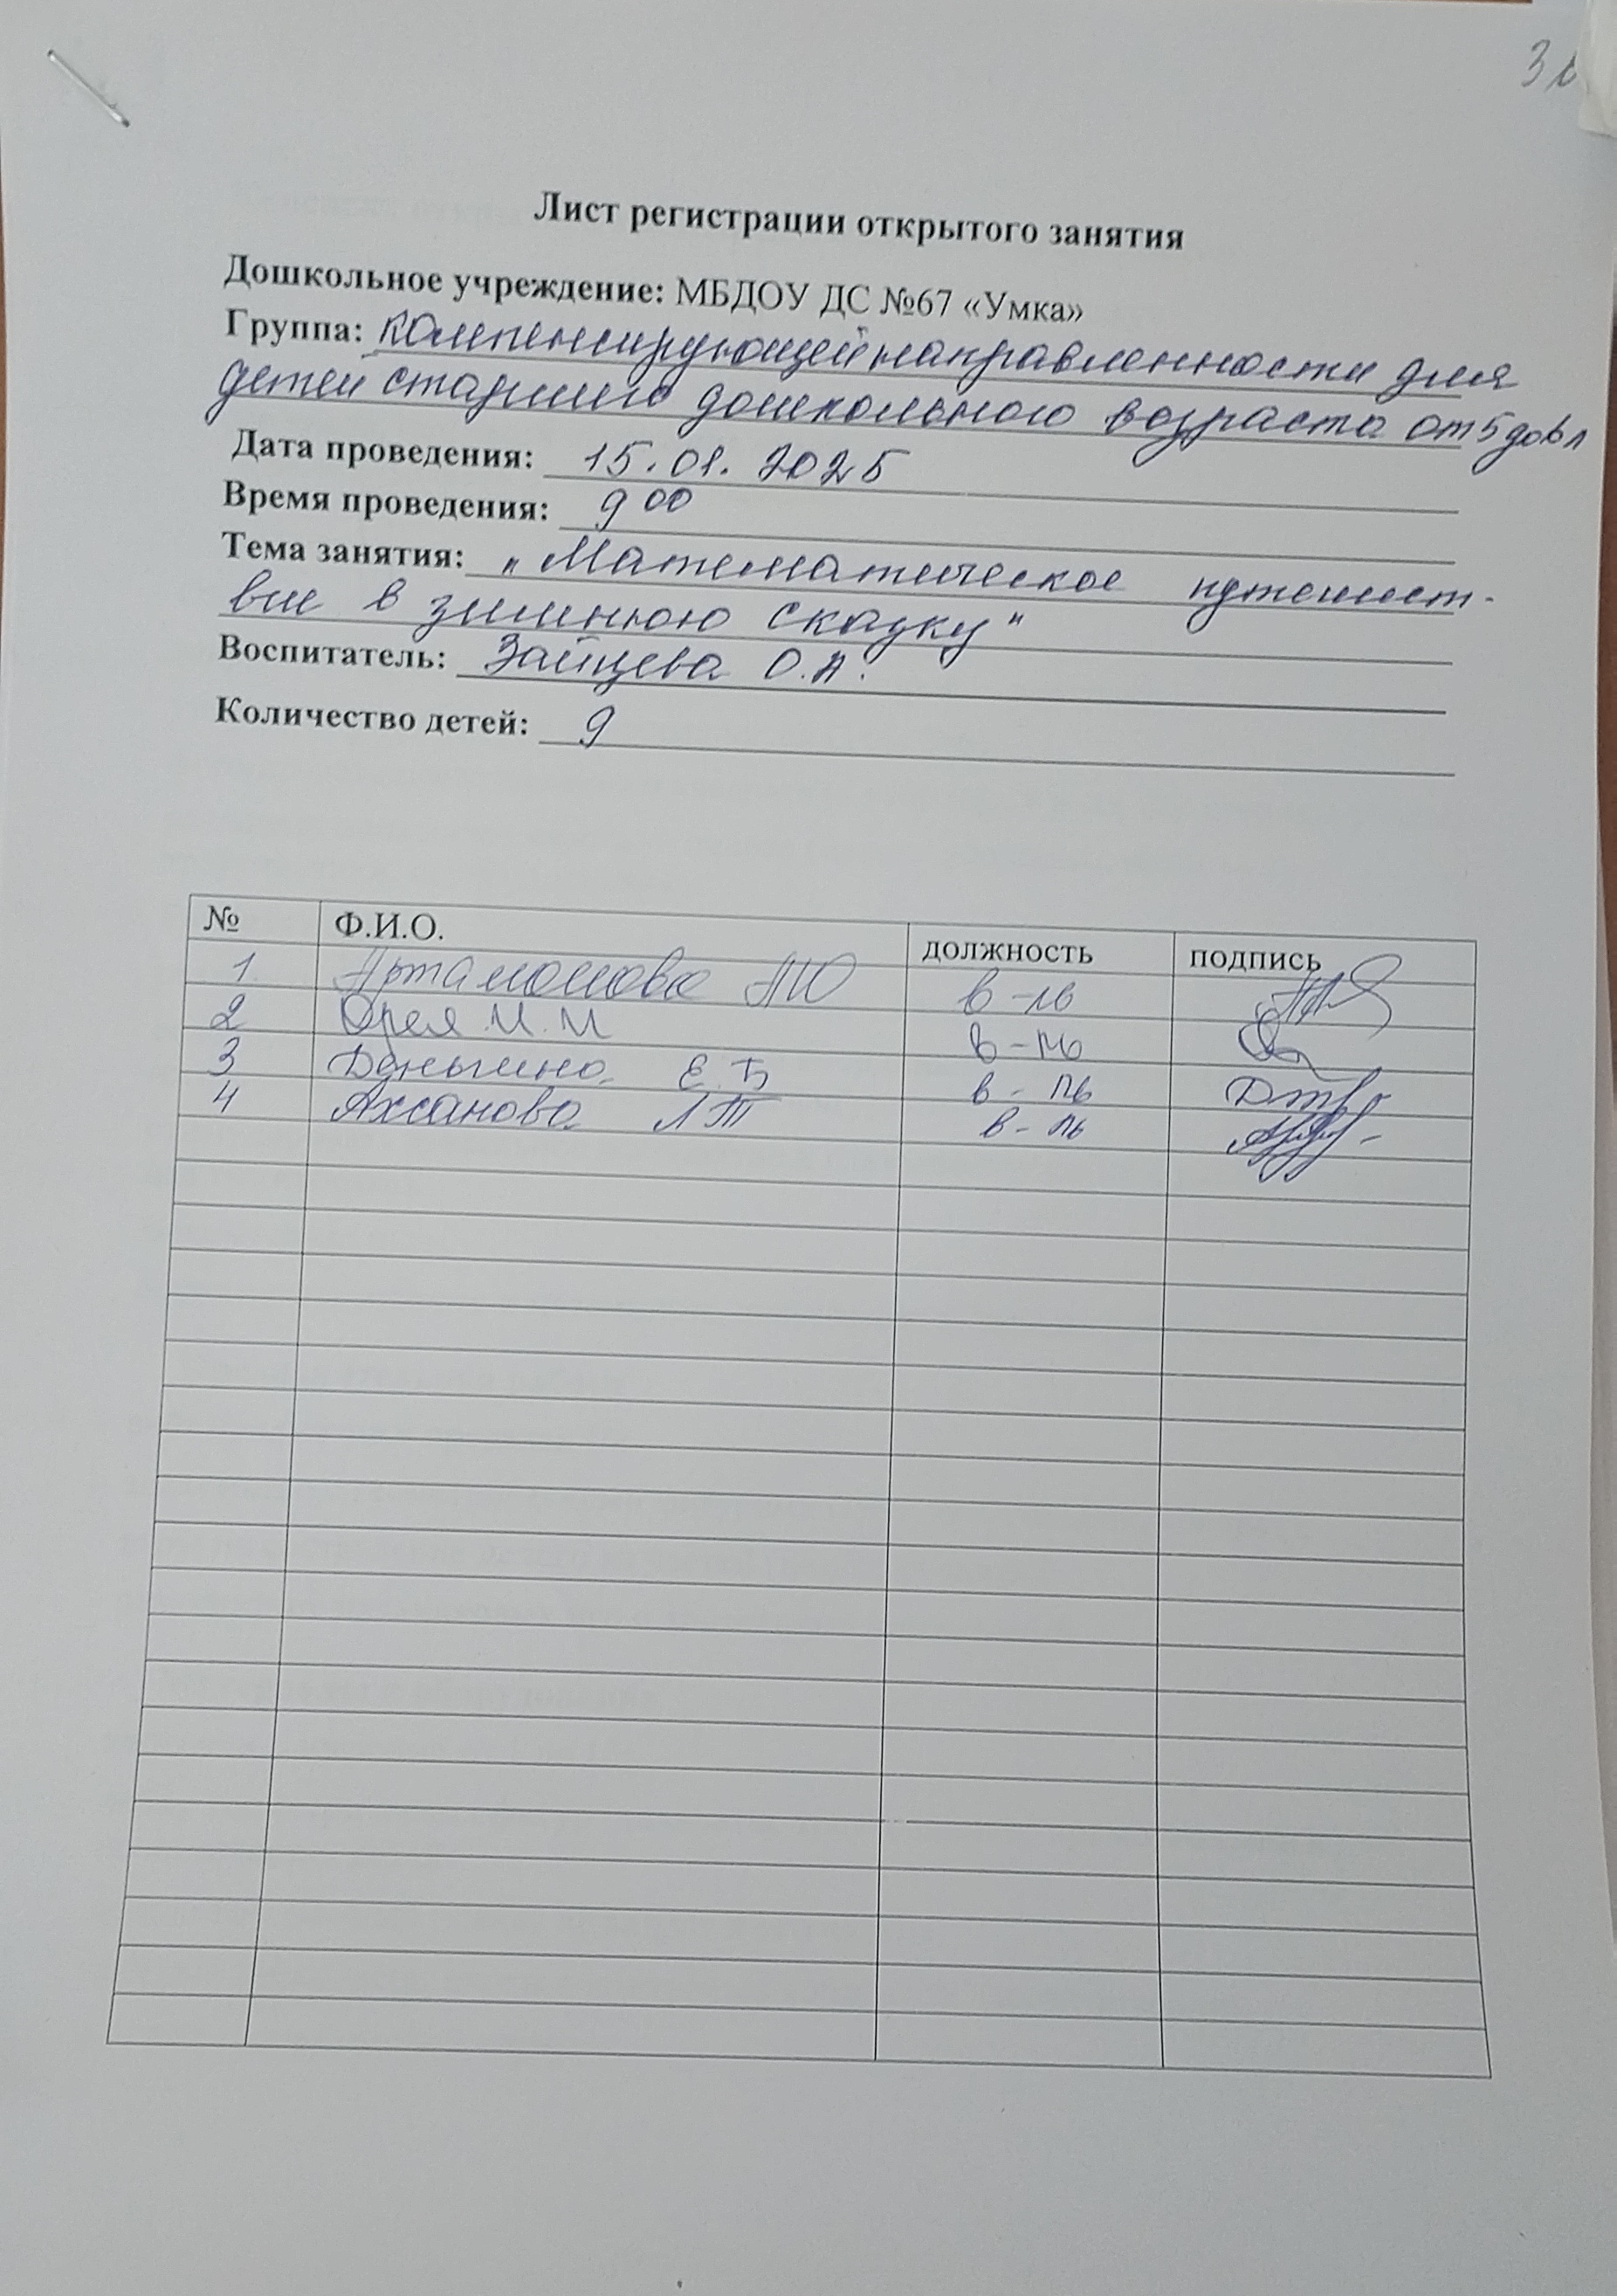 Лист регистрации открытого занятия
Дошкольное учреждение: МБДОУ ДС №67 «Умка»
Группа: компенсирующей направленности для
детей старшего дошкольного возраста от 5 до 6 л
Дата проведения: 15.01.2025
Время проведения: 9 00
Тема занятия: "Математическое путешест-
вие в зимнюю сказку"
Воспитатель: Зайцева О.А.
Количество детей: 9
№ Ф.И.О. должность подпись
1 Артамонова в-ль
2 М.М в-ль
3 Е.Б в-ль
4 Ахсанова Л Т в-ль